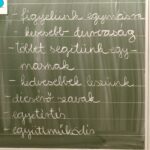 - figyelünk egymásra
- kevesebb durvaság
- Többet segítünk egy-
másnak
- kedvesebbek leszünk
- dicsérő szavak
- egyetértés
- együttműködés